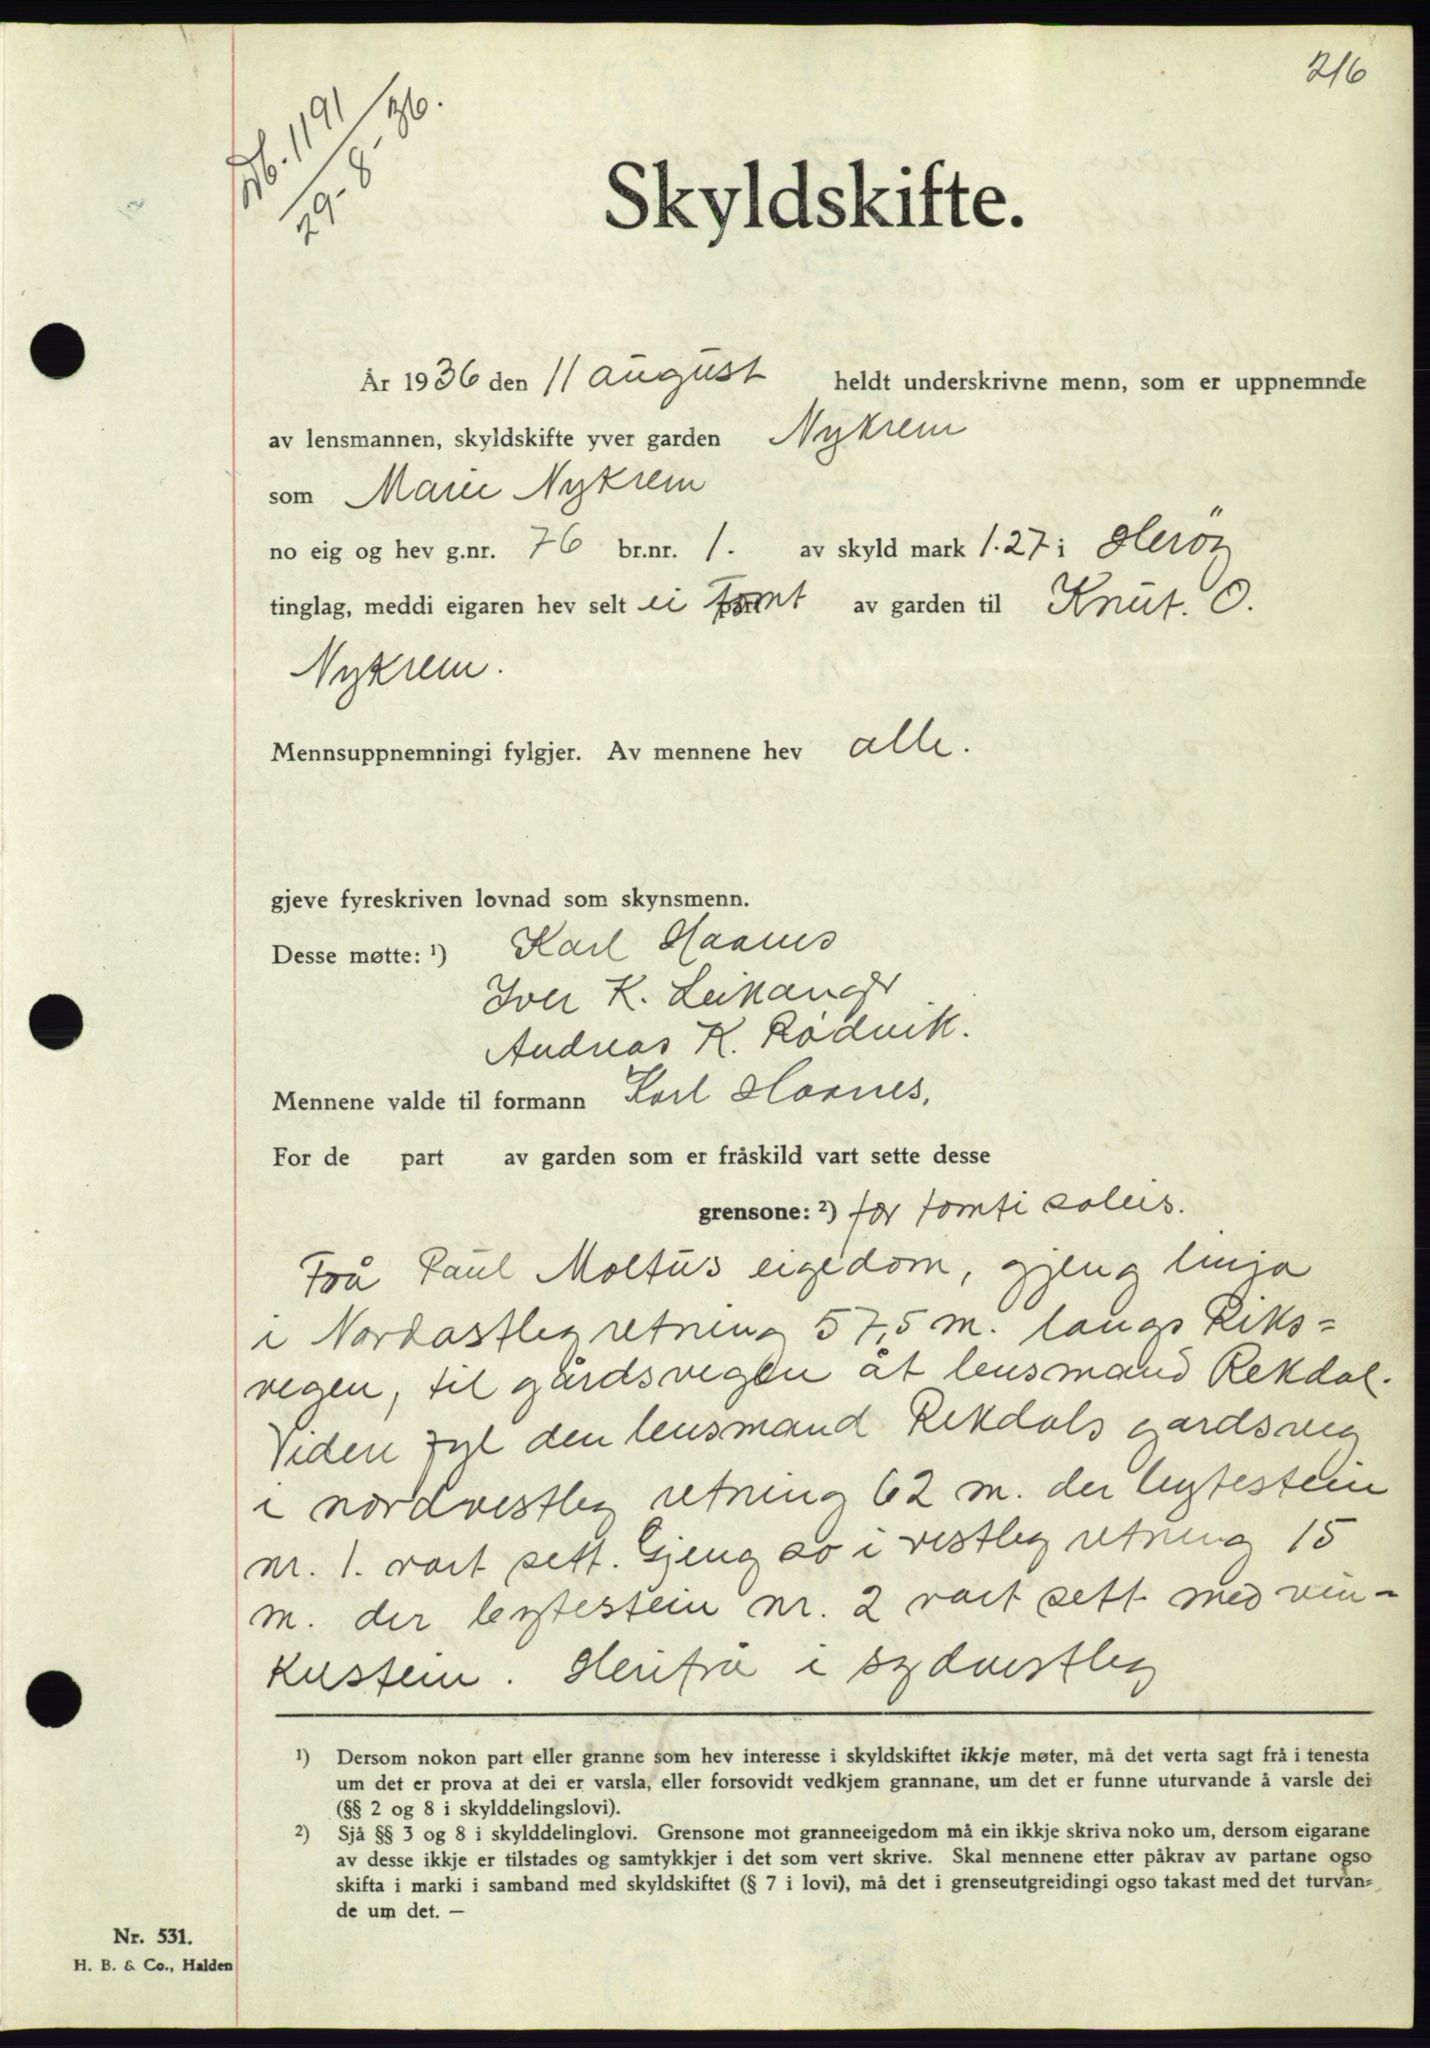 216
Db. 1191
29-8-36.
Skyldskifte.
År 1936 den 11 august heldt underskrivne menn, som er uppnemnde
av lensmannen, skyldskifte yver garden Nykrem
som Marie Nykrem
no eig og hev g.nr. 76 br.nr. 1. av skyld mark 1.27 i Heröy
tinglag, meddi eigaren hev selt ei tomt av garden til Knut. O.
Nykrem.
Mennsuppnemningi fylgjer. Av mennene hev alle.
gjeve fyreskriven lovnad som skynsmenn.
Desse møtte: ¹) Karl Haanes
Iver K. Leikanger
Andreas K. Rødvik.
Mennene valde til formann Karl Haanes,
For de part av garden som er fråskild vart sette desse
grensone: ²) for tomti soleis.
Frå Paul Moltus eigedom, gjeng linja
i Nordastleg retning 57,5 m. langs Riks=
vegen, til gårdsvegen åt lensmand Rekdal.
Videre fyl den lensmand Rekdals gardsveg
i nordvestleg retning 62 m. der bytestein
nr. 1. vart sett. Gjeng so i vestleg retning 15
m. der bytestein nr. 2 vart sett med vin-
kelstein. Herifra i sydvestleg
¹) Dersom nokon part eller granne som hev interesse i skyldskiftet ikkje møter, må det verta sagt frå i tenesta
um det er prova at dei er varsla, eller forsovidt vedkjem grannane, um det er funne uturvande å varsle dei
(§§ 2 og 8 i skylddelingslovi).
²) Sjå §§ 3 og 8 i skylddelinglovi. Grensone mot granneeigedom må ein ikkje skriva noko um, dersom eigarane
av desse ikkje er tilstades og samtykkjer i det som vert skrive. Skal mennene etter påkrav av partane ogso
skifta i marki i samband med skyldskiftet (§ 7 i lovi), må det i grenseutgreidingi ogso takast med det turvan=
de um det. —
Nr. 531.
H. B. & Co., Halden